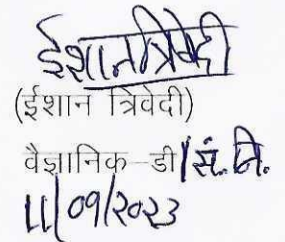 ईशान त्रिवेदी
(ईशान त्रिवेदी)
वैज्ञानिक डी/सं.नि.
11/09/2023